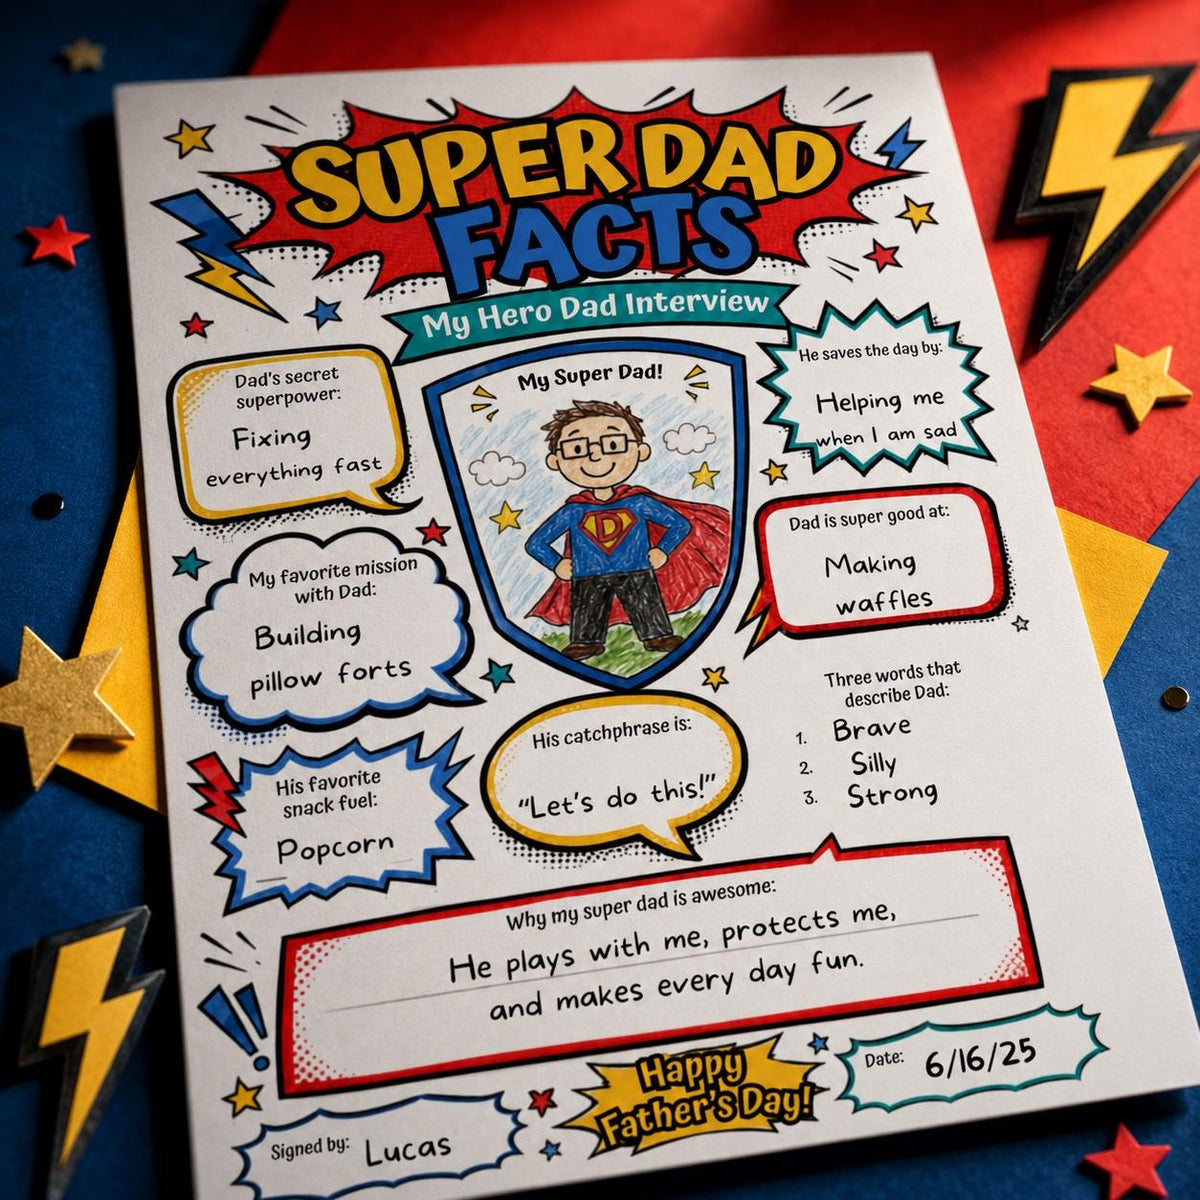 SUPER DAD
FACTS
My Hero Dad Interview
Dad's secret
superpower:
Fixing
everything fast
My Super Dad!
D
He saves the day by:
Helping me
when I am sad
My favorite mission
with Dad:
Building
pillow forts
Dad is super good at:
Making
waffles
His favorite
snack fuel:
Popcorn
His catchphrase is:
"Let's do this!"
Three words that
describe Dad:
1. Brave
2. Silly
3. Strong
Why my super dad is awesome:
He plays with me, protects me,
and makes every day fun.
Signed by: Lucas
Happy
Father's Day!
Date: 6/16/25